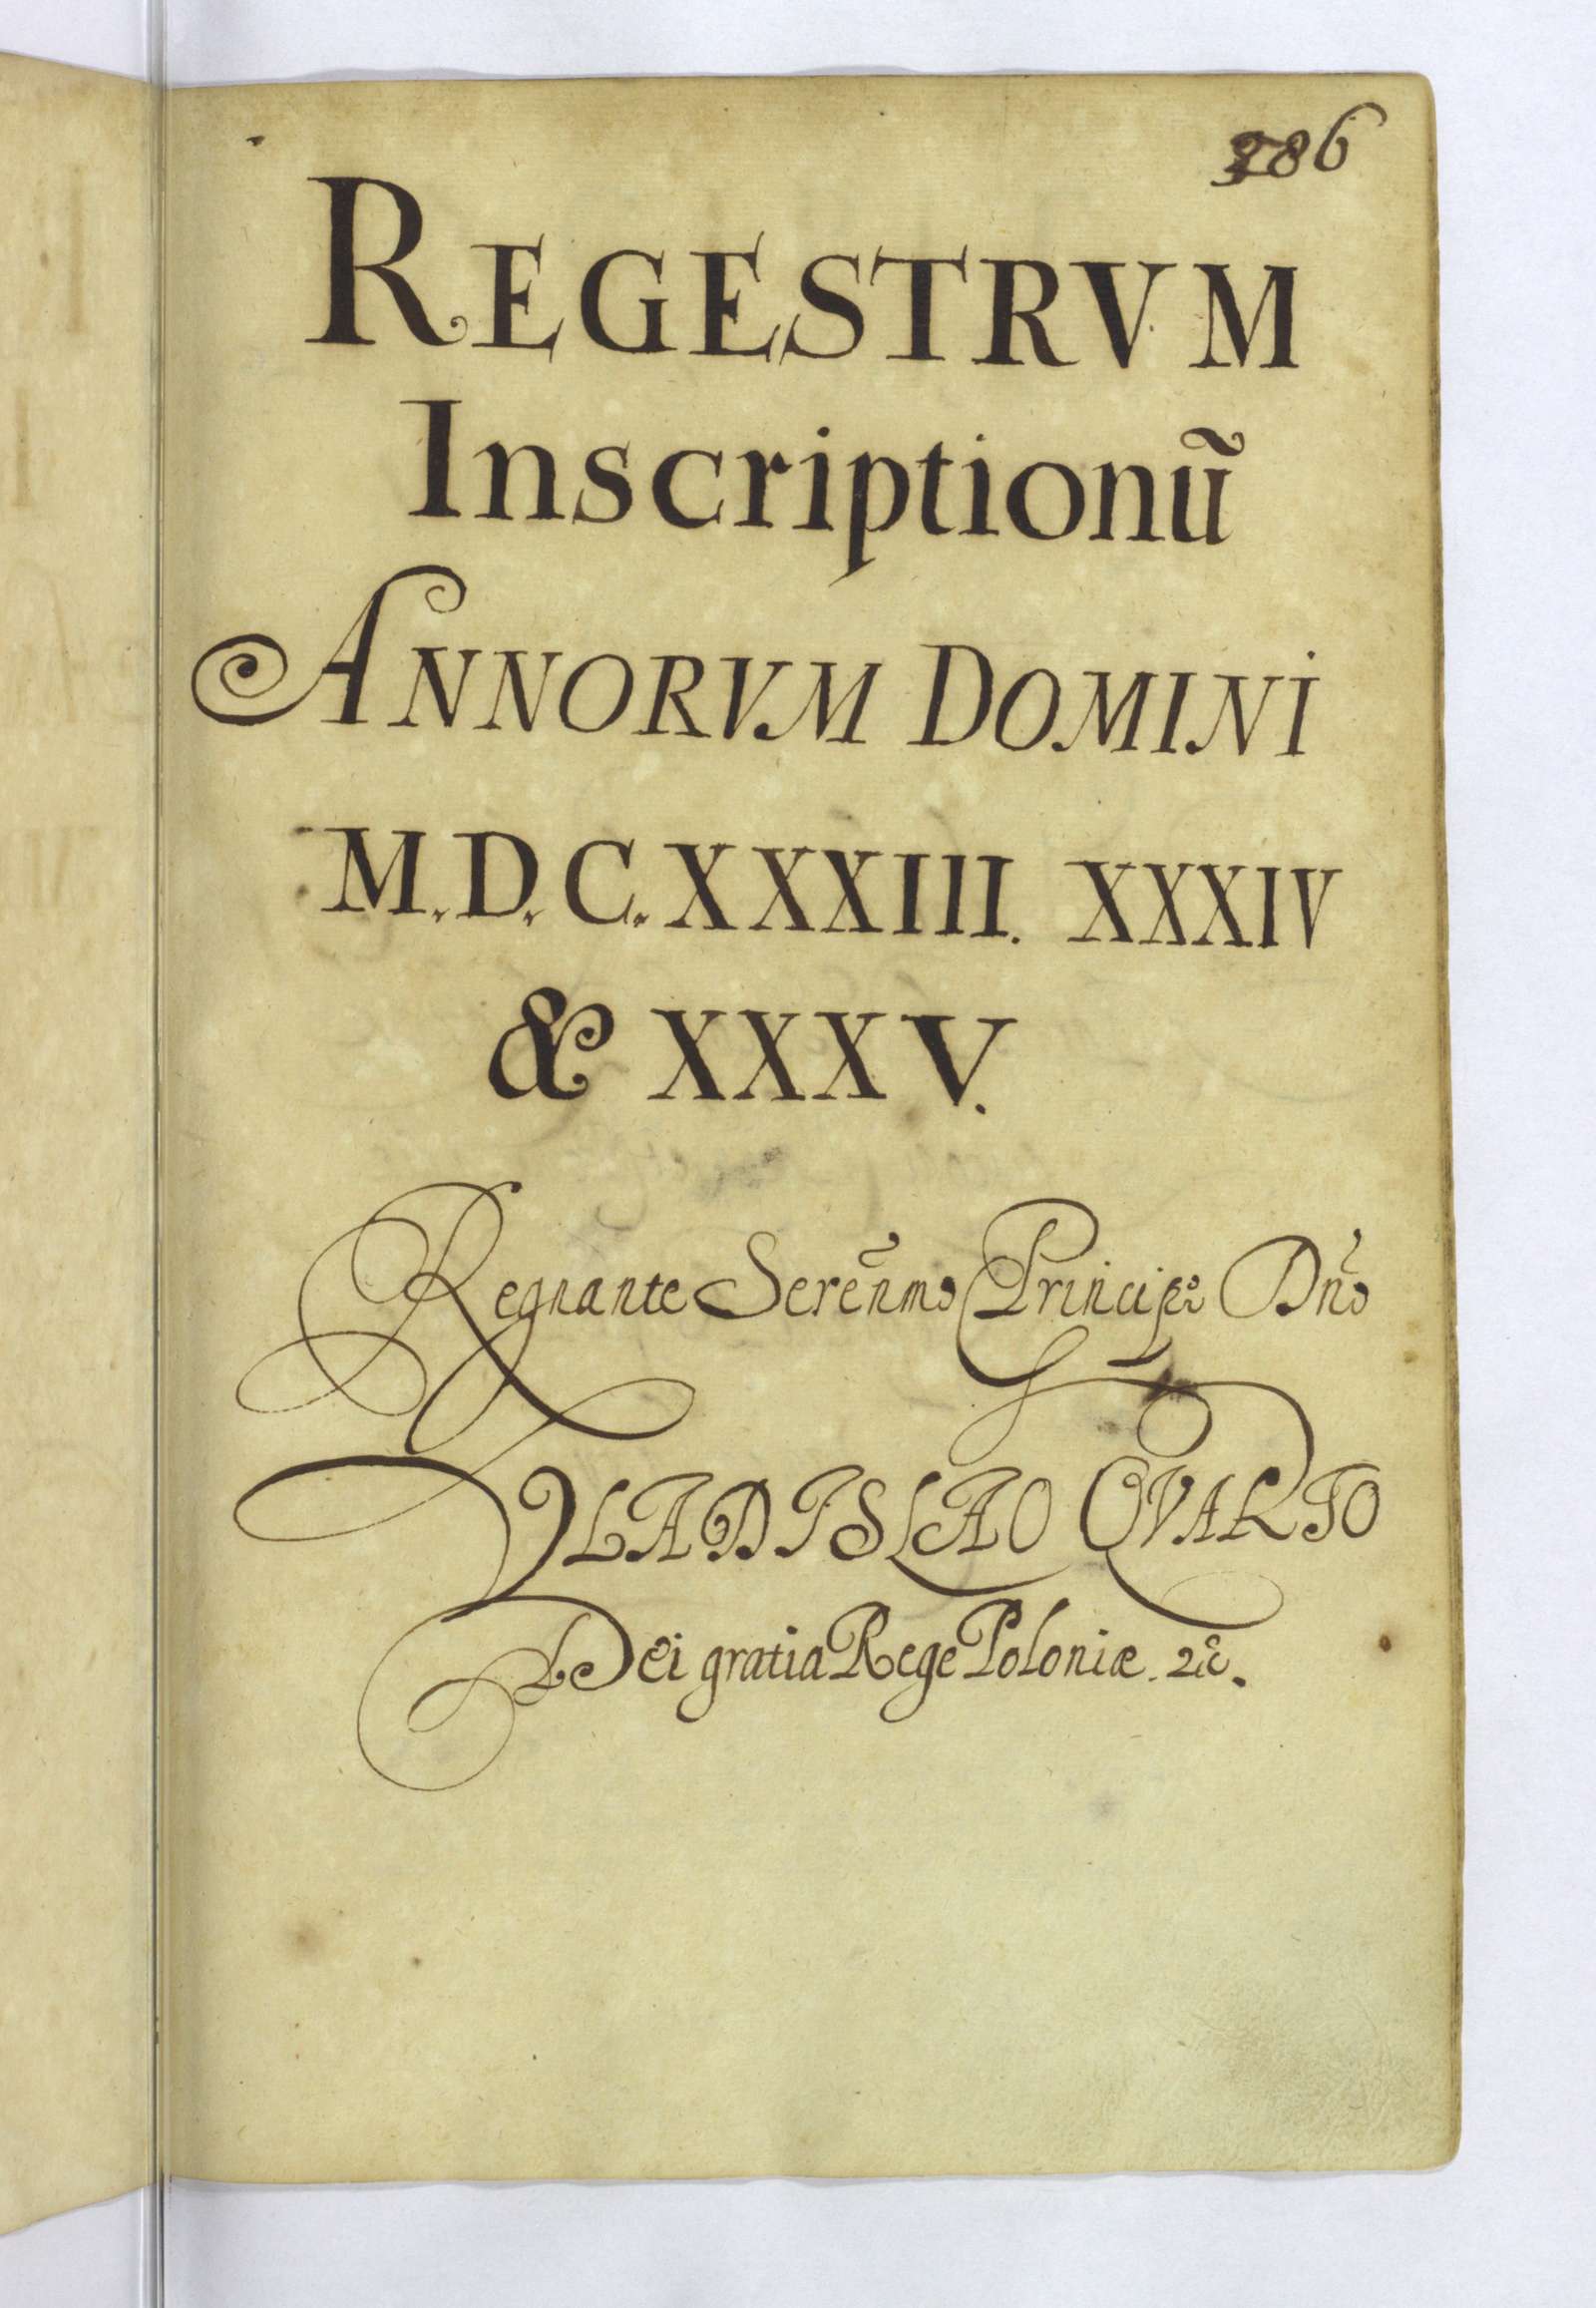 386
REGESTRVM
Inscriptionũ
ANNORVM DOMINI
M.D.C.XXXIII. XXXIV
& XXXV.
Regnante Sereñmo Principe Dño
VLADISLAO QVARTO
Dei gratia Rege Poloniæ. &c.